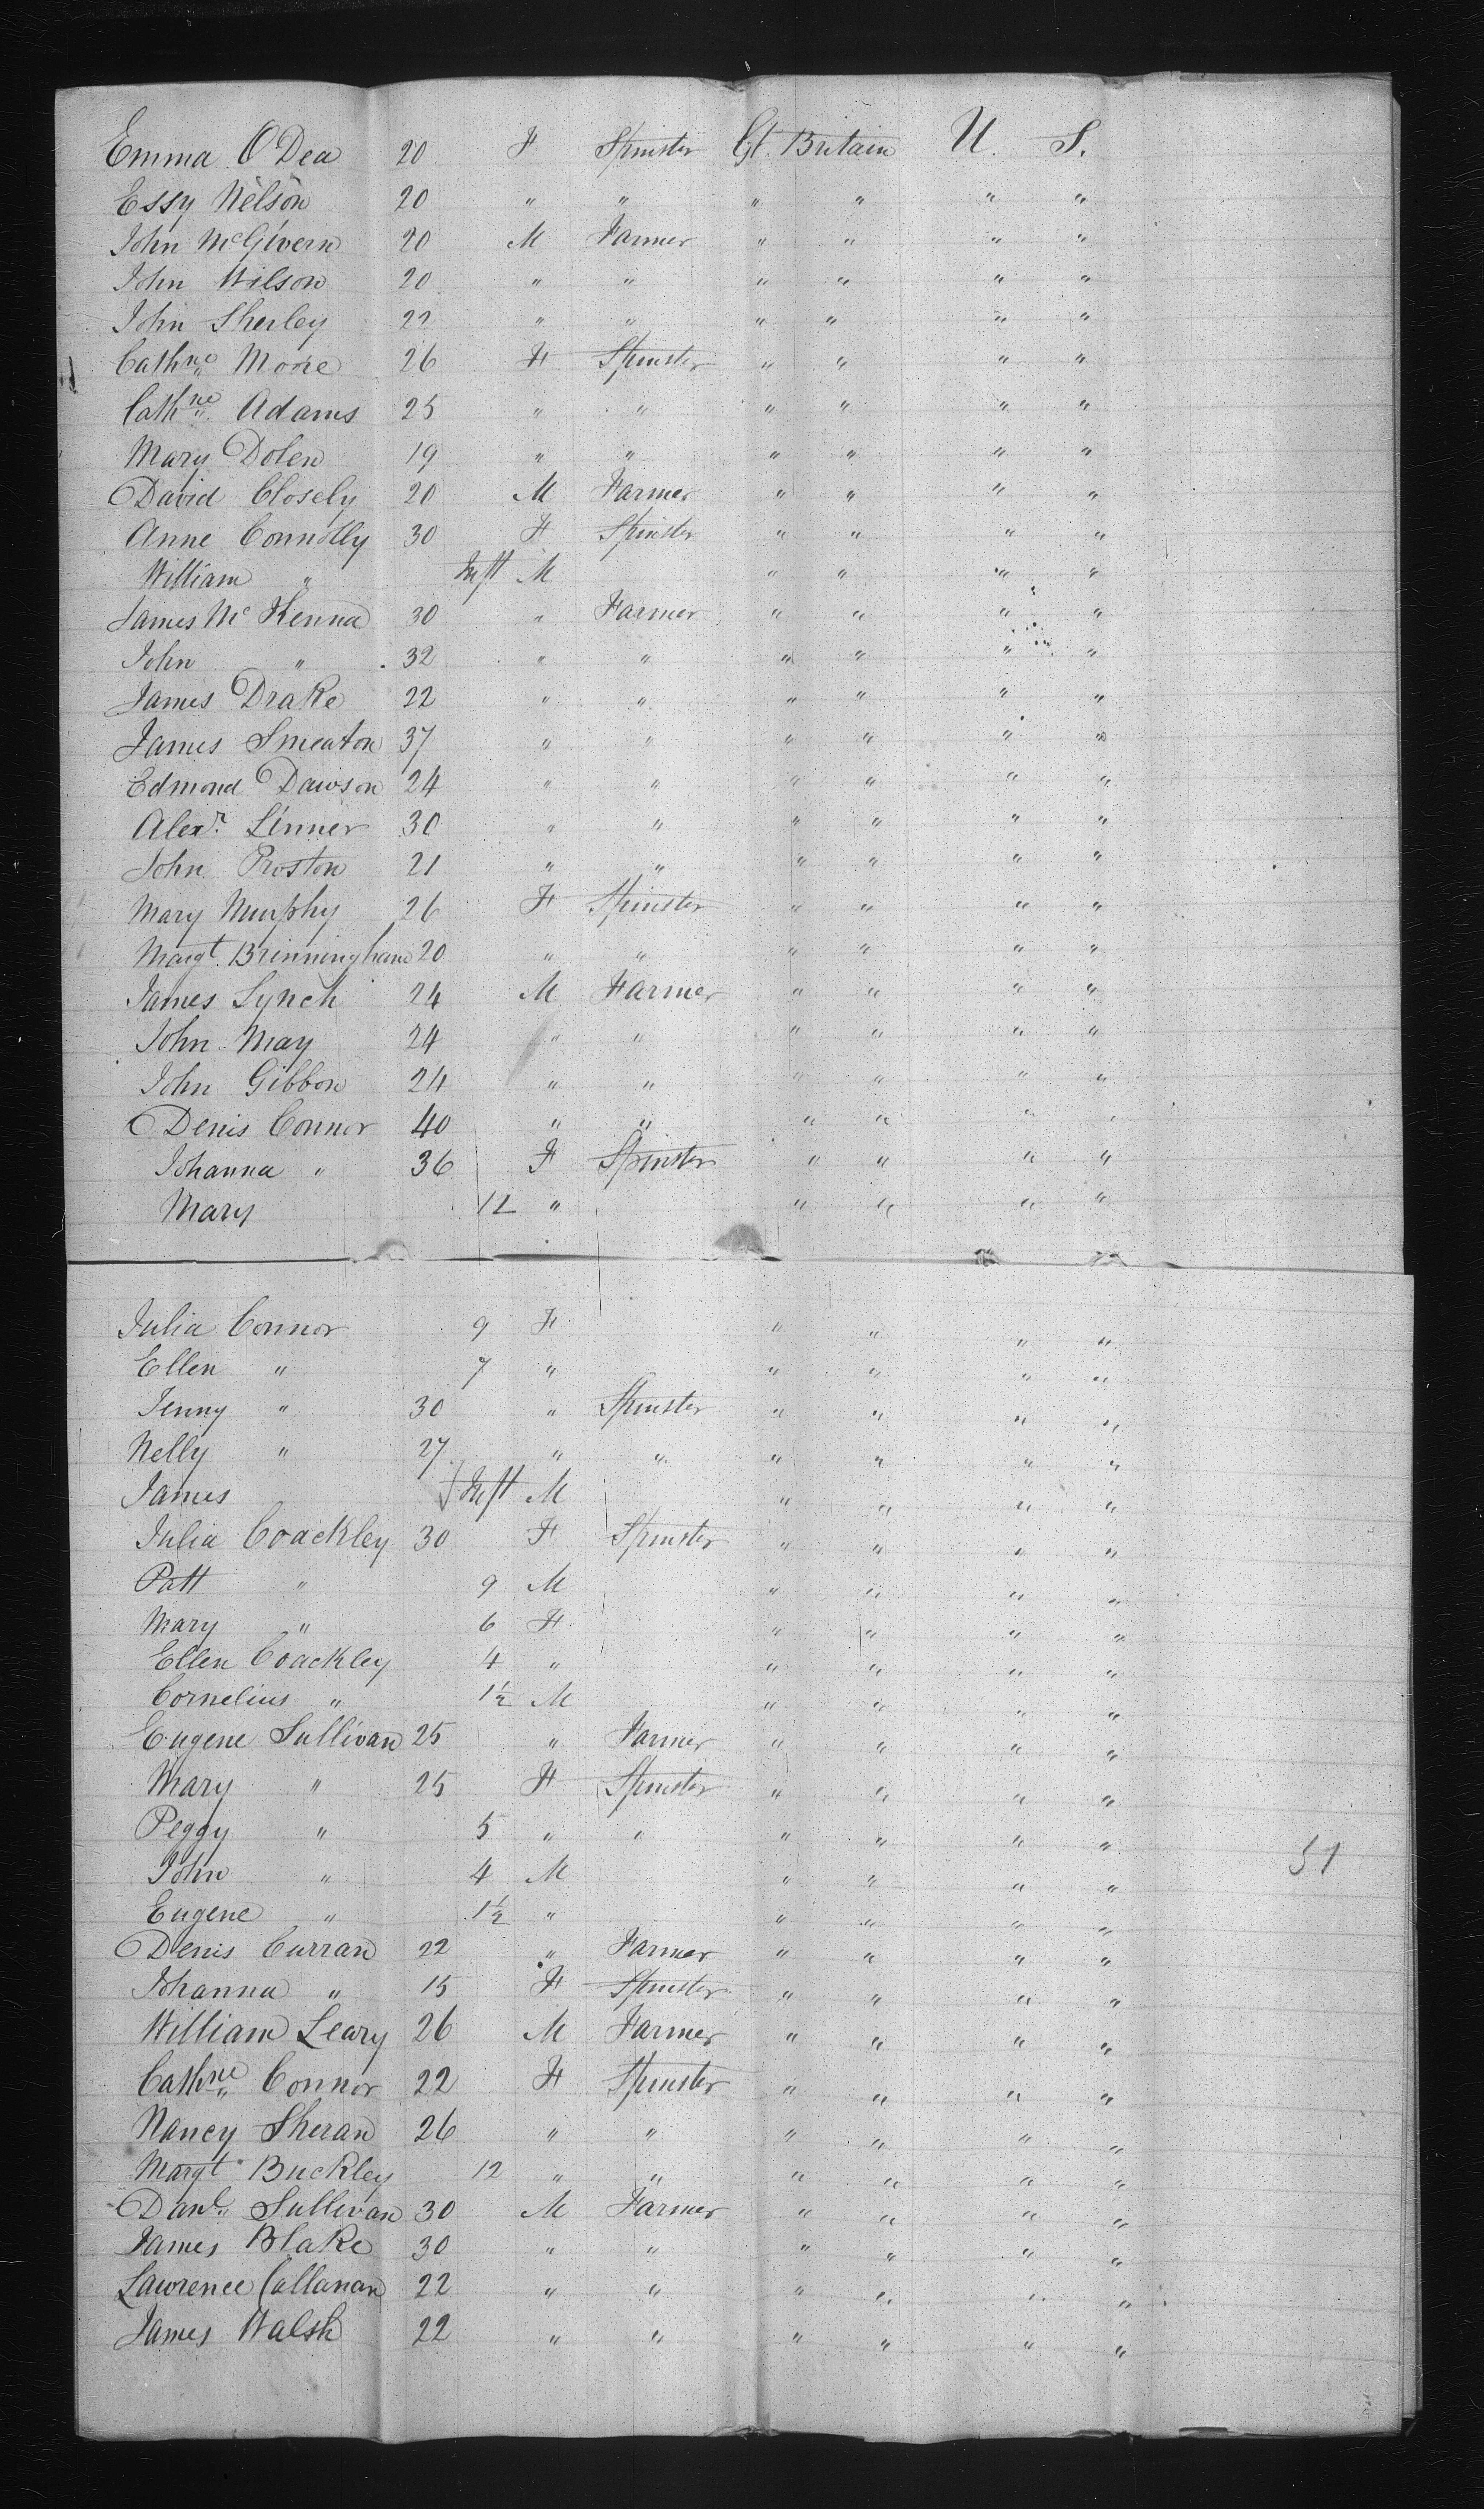 Emma O'Dea 20 F Spinster Gt. Britain U. S.
Essy Nelson 20 " " " " " "
John McGivern 20 M Farmer " " " "
John Wilson 20 " " " " " "
John Sherley 22 " " " " " "
Cathne Moore 26 F Spinster " " " "
Cathne Adams 25 " " " " " "
Mary Dolen 19 " " " " " "
David Closely 20 M Farmer " " " "
Anne Connolly 30 F Spinster " " " "
William " Inft M " " " "
James McKenna 30 " Farmer " " " "
John " 32 " " " " " "
James Drake 22 " " " " " "
James Smeaton 37 " " " " " "
Edmond Dawson 24 " " " " " "
Alexr. Linner 30 " " " " " "
John Proston 21 " " " " " "
Mary Murphy 26 F Spinster " " " "
Margt. Brinningham 20 " " " " " "
James Lynch 24 M Farmer " " " "
John May 24 " " " " " "
John Gibbon 24 " " " " " "
Denis Connor 40 " " " " " "
Johanna " 36 F Spinster " " " "
Mary 12 " " " " "
Julia Connor 9 F " " " "
Ellen " 7 " " " " "
Jenny " 30 " Spinster " " " "
Nelly " 27 " " " " " "
James Inft M " " " "
Julia Coackley 30 F Spinster " " " "
Patt " 9 M " " " "
Mary " 6 F " " " "
Ellen Coackley 4 " " " " "
Cornelius " 1½ M " " " "
Eugene Sullivan 25 " Farmer " " " "
Mary " 25 F Spinster " " " "
Peggy " 5 " " " " " "
John " 4 M " " " "
Eugene " 1½ " " " " "
Denis Curran 22 " Farmer " " " "
Johanna " 15 F Spinster " " " "
William Leary 26 M Farmer " " " "
Cathne Connor 22 F Spinster " " " "
Nancy Sheran 26 " " " " " "
Margt Buckley 12 " " " " " "
Danl. Sullivan 30 M Farmer " " " "
James Blake 30 " " " " " "
Lawrence Callanan 22 " " " " " "
James Walsh 22 " " " " " "
51